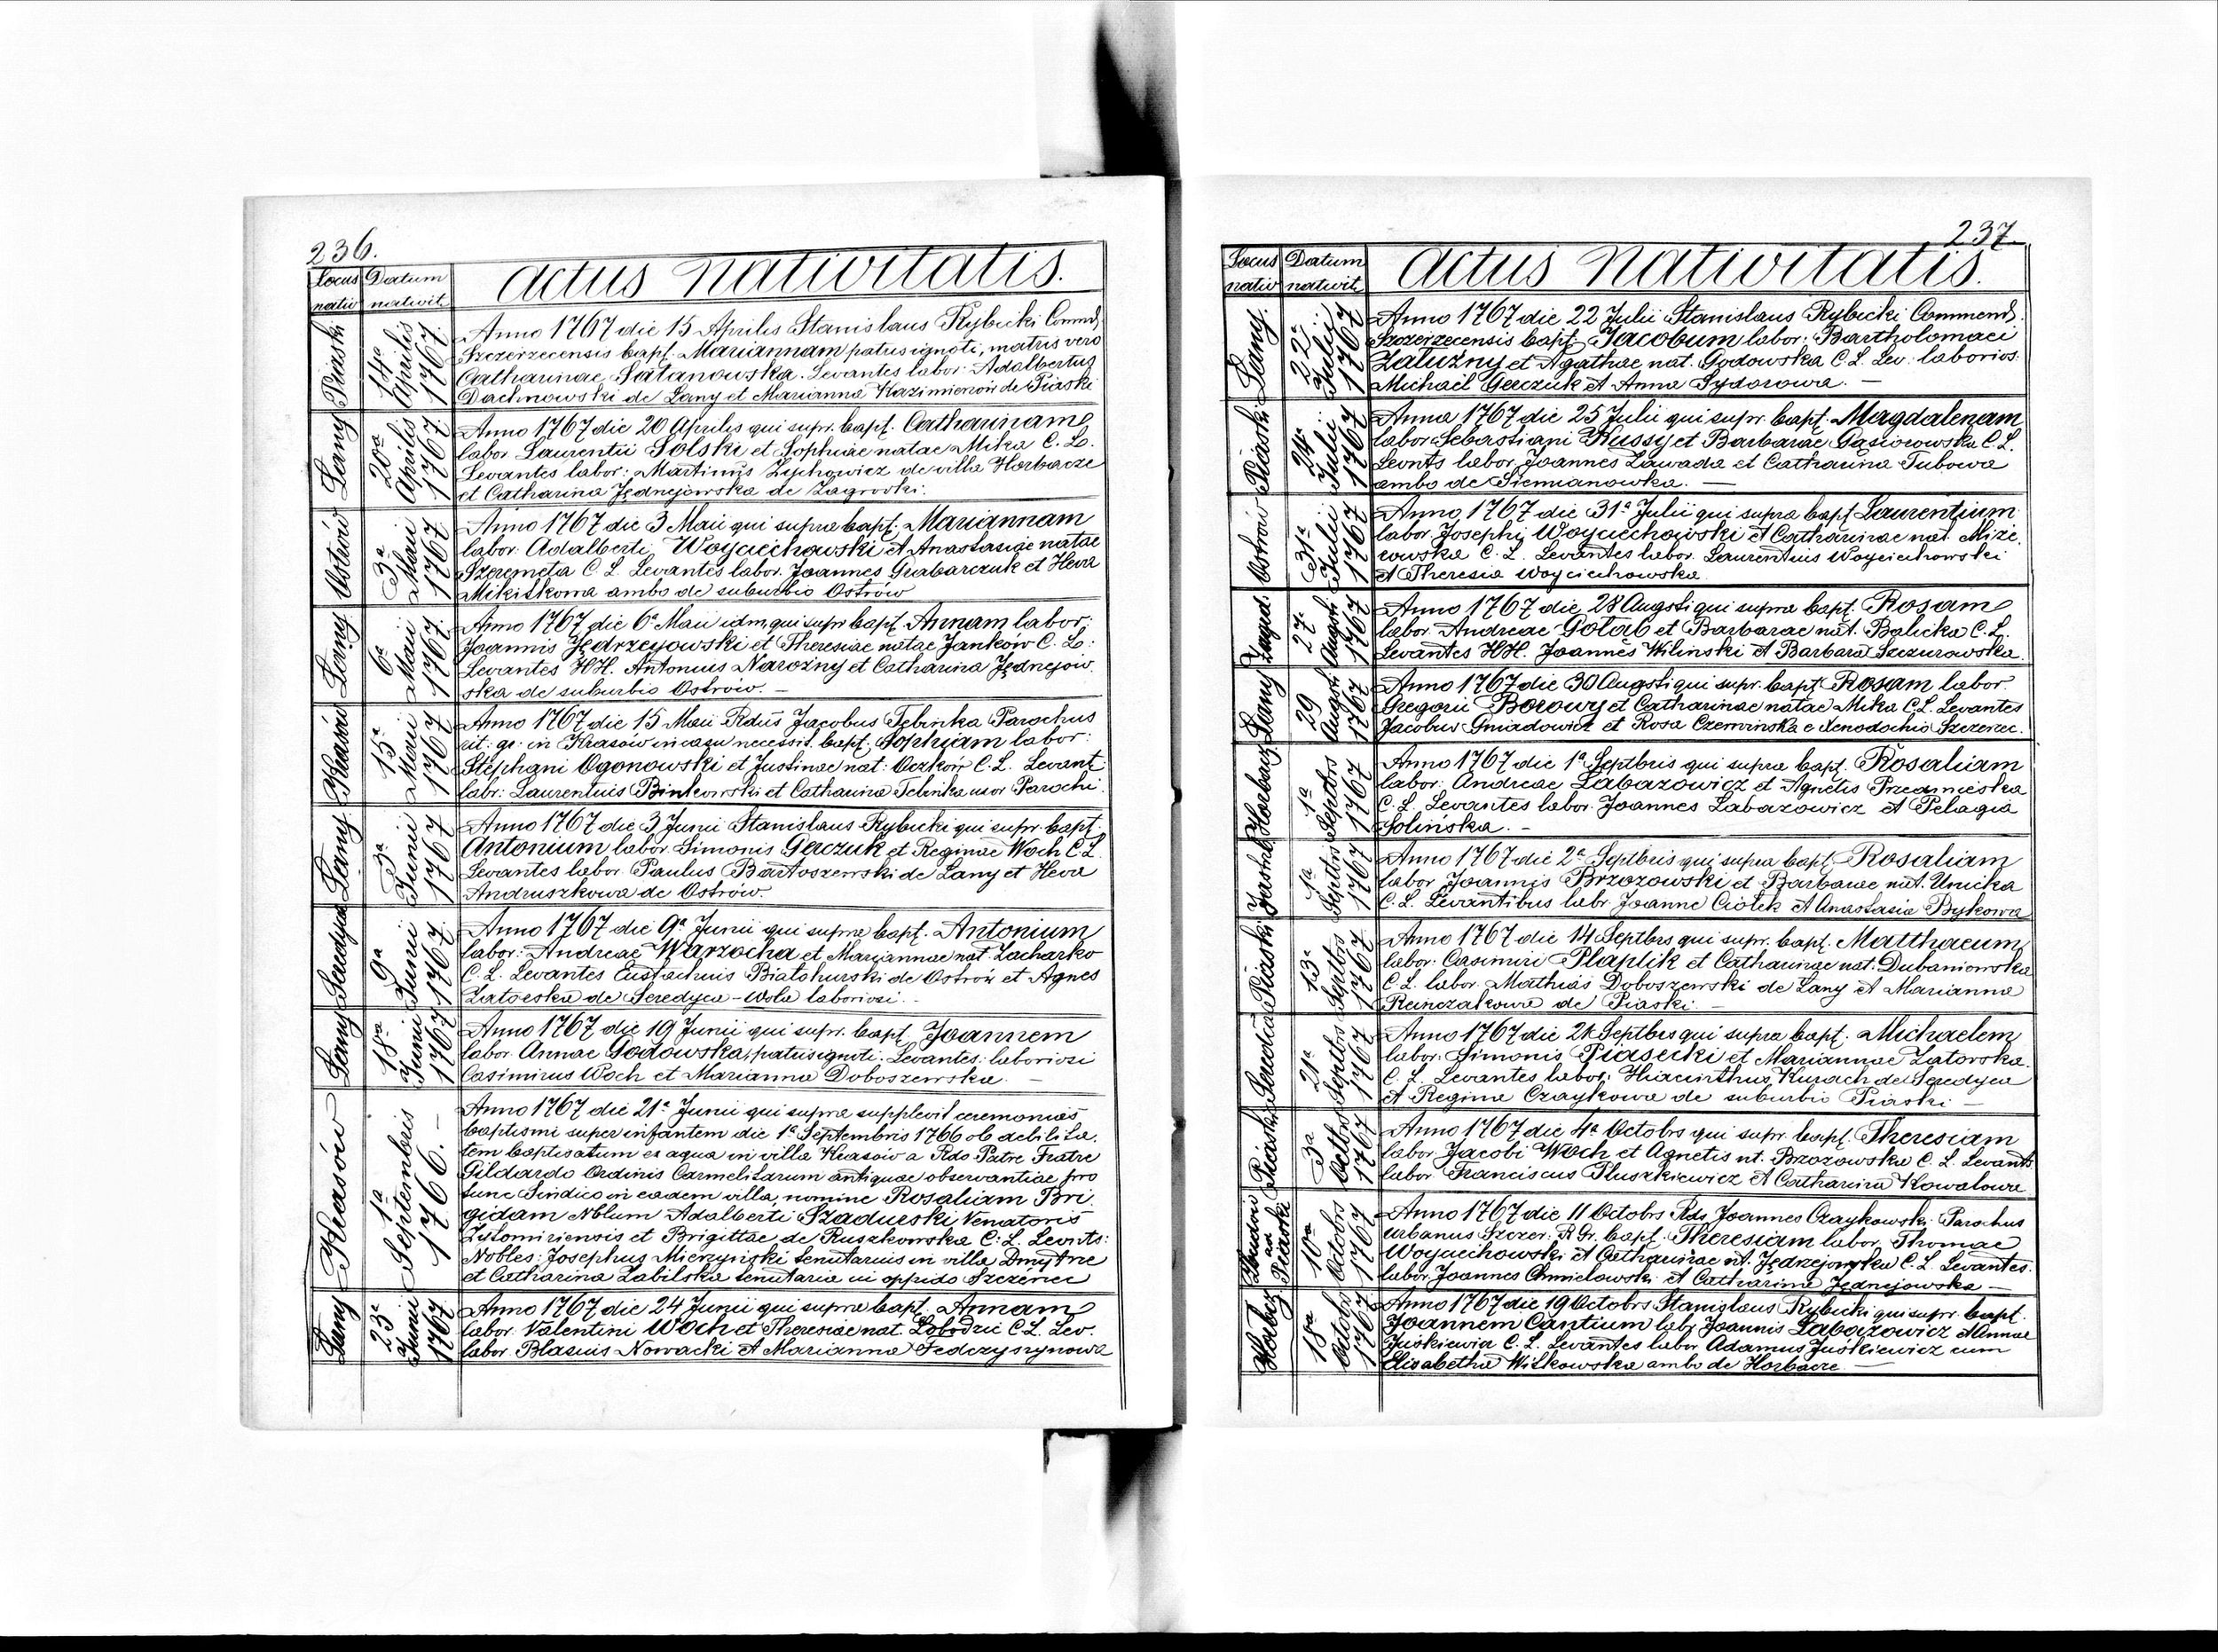 236.
Locus nativ
Datum nativit
Actus Nativitatis.
Piaski
14a Aprilis 1767.
Anno 1767 die 15 Aprilis Stanislaus Rybicki Commd,
Szczerzecensis bapt. Mariannam patris ignoti, matris vero
Catharinae Satanowska. Levantes labor: Adalbertus
Dachnowski de Lany et Marianna Kazimierzów de Piaski
Lany
20a Aprilis 1767
Anno 1767 die 20 Aprilis qui supr. bapt. Catharinam
labor Laurentii Solski et Sophiae natae Mika C. L.
Levantes labor: Martinus Zychowicz de villa Horbacze
et Catharina Jędnejowska de Zagrodki.
Ostrów
3a Maii 1767
Anno 1767 die 3 Maii qui supra bapt. Mariannam
labor. Adalberti Woyciechowski et Anastasiae natae
Szeremeta C. L. Levantes labor. Joannes Grabarczuk et Heva
Mikitkowa ambo de suburbio Ostrów
Lany
6a Maii 1767
Anno 1767 die 6a Maii idm qui supr bapt. Annam labor:
Joannis Jędrzeyowski et Theresiae natae Janków C. L:
Levantes HH. Antonius Narożny et Catharina Jędnejow
ska de suburbio Ostrów. —
Krasów
15a Maii 1767
Anno 1767 die 15 Maii Rdus Jacobus Tebinka Parochus
rit: gr: in Krasów in casu necessit. bapt. Sophiam labor:
Stephani Ogonowski et Justinae nat: Oczków C. L. Levant
labr: Laurentius Binkowski et Catharina Tebinka uxor Parochi.
Lany
3a Junii 1767
Anno 1767 die 3 Junii Stanislaus Rybicki qui supr. bapt.
Antonium labor. Simonis Gerczuk et Reginae Woch C. L.
Levantes labor. Paulus Bartoszewski de Lany et Heva
Andruszkowa de Ostrów.
Seredyca
9a Junii 1767
Anno 1767 die 9a Junii qui supra bapt. Antonium
labor: Andreae Warzocha et Mariannae nat. Zacharko
C. L. Levantes Eustachius Białohurski de Ostrów et Agnes
Zatorska de Seredyca-Wola laboriosi. —
Lany
18va Junii 1767
Anno 1767 die 19 Junii qui supr. bapt. Joannem
labor. Annae Godowska, patris ignoti. Levantes: laboriosi
Casimirus Woch et Marianna Doboszewska. —
Krasów
1a Septembris 1766. —
Anno 1767 die 21a Junii qui supra supplevit ceremonias
baptismi super infantem die 1a Septembris 1766 ob debilita-
tem baptisatum ex aqua in villa Krasów a Rdo Patre Fratre
Gildardo Ordinis Carmelitarum antiquae observantiae pro
tunc Sindico in eadem villa, nomine Rosaliam Bri
gidam Nblum Adalberti Szadurski Venatoris
Żytomiriensis et Brigittae de Ruszkowska C. L. Levnts:
Nobles: Josephus Mierzyński tenutarius in villa Dmytrze
et Catharina Zabilska tenutaria in oppido Szczerzec
Lany
23a Junii 1767
Anno 1767 die 24 Junii qui supra bapt. Annam
labor. Valentini Woch et Theresiae nat. Łobodzic C. L. Lev.
labor. Blasius Nowacki et Marianna Fedczyszynowa
237.
Locus nativ
Datum nativit
Actus Nativitatis.
Lany.
22a Julii 1767
Anno 1767 die 22 Julii Stanislaus Rybicki Commend.
Szczerzecensis bapt. Jacobum labor: Bartholomaei
Załużny et Agathae nat. Godowska C. L. Lev: laborios:
Michael Gerczuk et Anna Sydorowa. —
Piaski
24a Julii 1767
Anna 1767 die 25 Julii qui supr. bapt. Magdalenam
labor. Sebastiani Kussy et Barbarae Gąsiorowska C. L.
Levnts labor Joannes Zawada et Catharina Tubowa
ambo de Siemianowka. —
Ostrów
31a Julii 1767
Anno 1767 die 31a Julii qui supra bapt. Laurentium
labor. Josephi Woyciechowski et Catharinae nat. Mize.
rowska C. L. Levantes labor. Laurentius Woyciechowski
et Theresia Woyciechowska.
Zagrod.
27a Augsti 1767
Anno 1767 die 28 Augsti qui supra bapt. Rosam
labor. Andreae Gołąb et Barbarae nat. Balicka C. L.
Levantes HH. Joannes Wiliński et Barbara Szczurowska.
Lany
29 Augsti 1767
Anno 1767 die 30 Augsti qui supr. bapt. Rosam labor.
Gregorii Borowy et Catharinae natae Mika C. L. Levantes
Jacobus Gniadowicz et Rosa Czerwinska e Xenodochio Szczerzec.
Horbacz
1a Septbris 1767
Anno 1767 die 1a Septbris qui supra bapt. Rosaliam
labor: Andreae Łabazowicz et Agnetis Przedmieska
C. L. Levantes labor. Joannes Łabazowicz et Pelagia
Solińska. —
1a Septbris 1767
Anno 1767 die 2a Septbris qui supra bapt. Rosaliam
labor Joannis Brzozowski et Barbarae nat. Unicka
C. L. Levantibus labr. Joanne Ciołek et Anastasia Bykowa
Piaski
13a Septbrs 1767
Anno 1767 die 14 Septbrs qui supr. bapt. Matthaeum
labor. Casimiri Płaplik et Catharinae nat. Dubaniowska
C. L. labor. Mathias Doboszewski de Lany et Marianna
Reinczakowa de Piaski. —
Seredica
21a Septbrs 1767
Anno 1767 die 21 Septbrs qui supra bapt. Michaelem
labor: Simonis Piasecki et Mariannae Zatorska.
C. L. Levantes labor: Hiacinthus Kurach de Seredyca
et Regina Czaykowa de suburbio Piaski —
Piaski
3a Octbrs 1767
Anno 1767 die 4a Octobrs qui supr. bapt. Theresiam
labor Jacobi Woch et Agnetis nt. Brzozowska C. L. Levants
labor. Franciscus Pluszkiewicz et Catharina Kowalowa
Piaski
10a Octobrs 1767
Anno 1767 die 11 Octobrs Rds Joannes Czaykowski Parochus
urbanus Szczer. R. Gr. bapt. Theresiam labor. Thomae
Woyciechowski et Catharinae nt. Jędrzejowska C. L. Levantes.
labor. Joannes Chmielowski et Catharina Jędnejowska —
Horbacz
18a Octobrs 1767
Anno 1767 die 19 Octobrs Stanislaus Rybicki qui supr. bapt.
Joannem Cantium labr. Joannis Łabazowicz et Annae
Juśkiewicz C. L. Levantes labor Adamus Juśkiewicz cum
Elisabetha Witkowska ambo de Horbacze. —